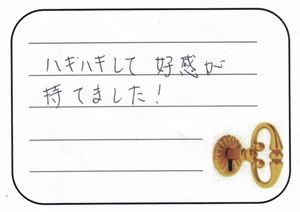 ハキハキして 好感が
持てました！